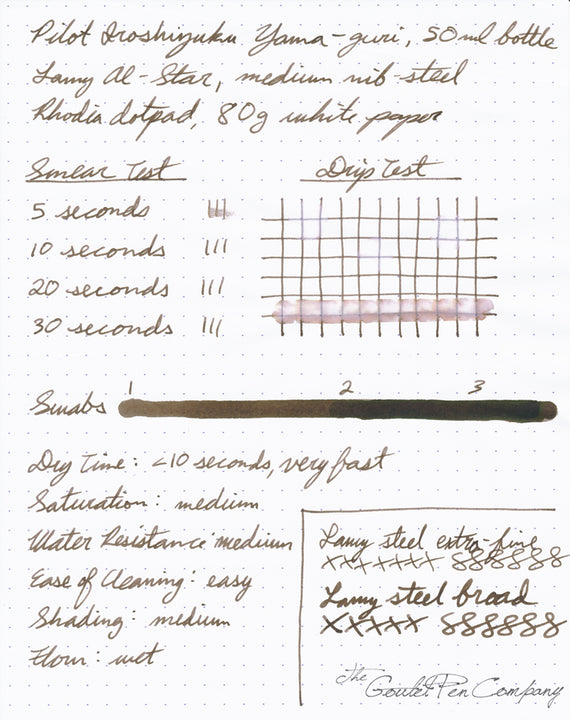 Pilot Iroshizuku Yama-guri, 50ml bottle
Lamy Al-Star, medium nib-steel
Rhodia dotpad, 80g white paper
Smear Test
Drip Test
5 seconds
10 seconds
20 seconds
30 seconds
1 2 3
Swabs
Dry Time: <10 seconds, very fast
Saturation: medium
Water Resistance: medium
Ease of Cleaning: easy
Shading: medium
Flow: wet
Lamy steel extra-fine
xxxxxxx 8888888
Lamy steel broad
xxxxx 888888
The Goulet Pen Company